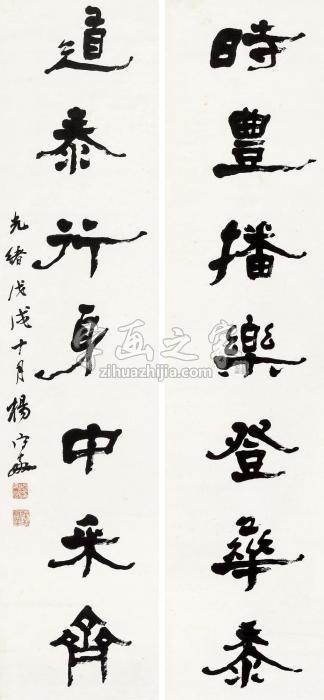 時豐播樂登華泰
道泰行身中采齊
光緒戊戌十月楊守敬
字画之家
zihuazhijia.com